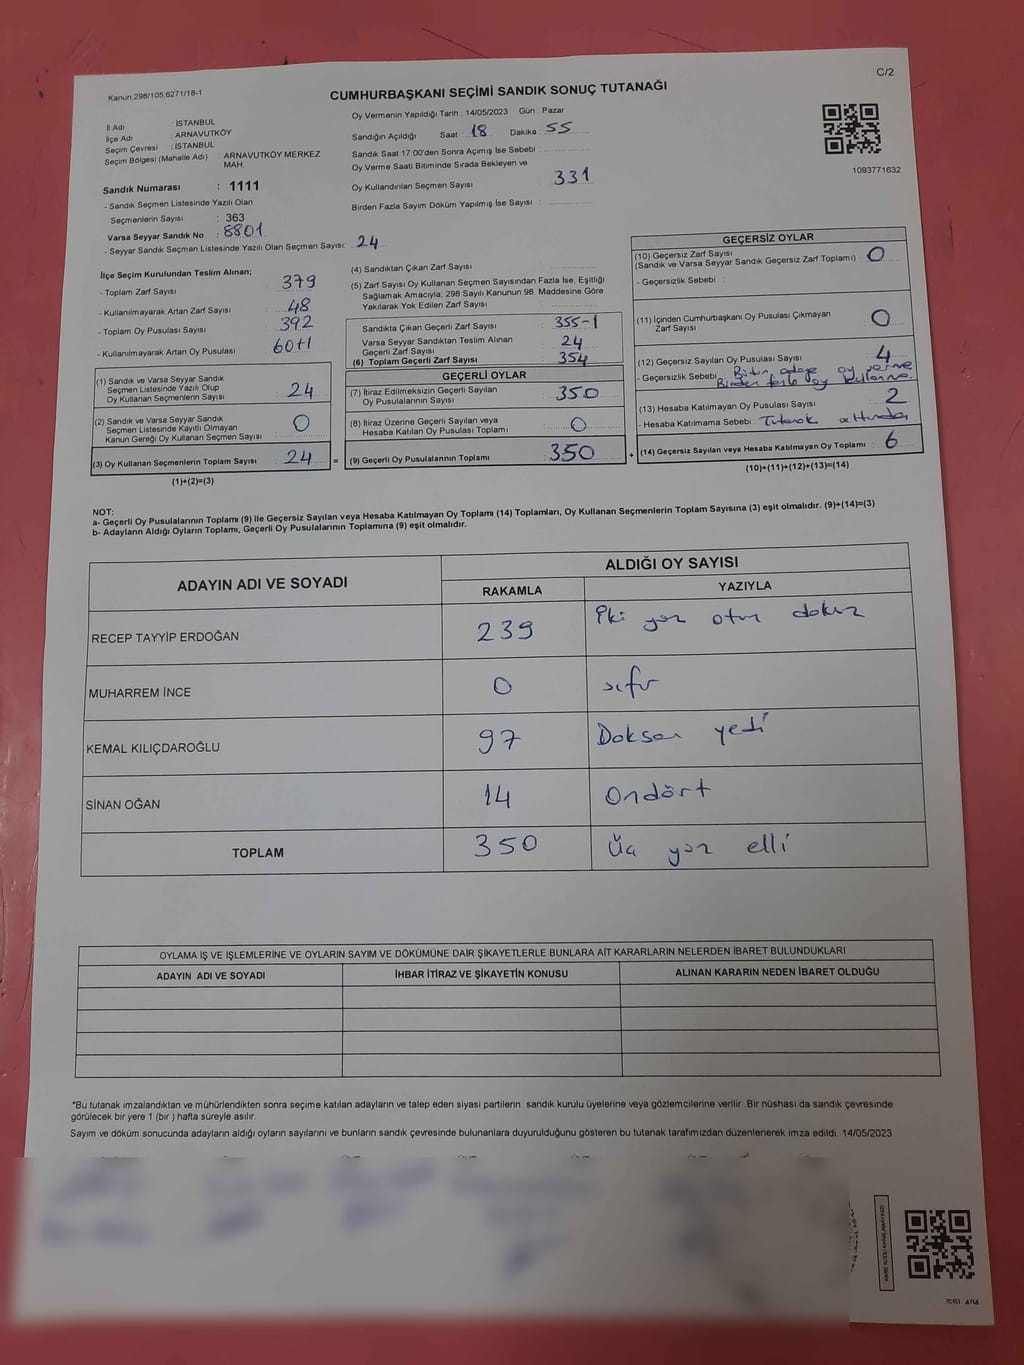 C/2
Kanun;298/105;6271/18-1
CUMHURBAŞKANI SEÇİMİ SANDIK SONUÇ TUTANAĞI
İl Adı : İSTANBUL
İlçe Adı : ARNAVUTKÖY
Seçim Çevresi : İSTANBUL
Seçim Bölgesi (Mahalle Adı) : ARNAVUTKÖY MERKEZ
MAH.
Sandık Numarası : 1111
- Sandık Seçmen Listesinde Yazılı Olan
Seçmenlerin Sayısı : 363
Varsa Seyyar Sandık No : 8801
- Seyyar Sandık Seçmen Listesinde Yazılı Olan Seçmen Sayısı: 24
Oy Vermenin Yapıldığı Tarih : 14/05/2023 Gün : Pazar
Sandığın Açıldığı Saat : 18 Dakika : 55
Sandık Saat 17.00'den Sonra Açımış İse Sebebi :
Oy Verme Saati Bitiminde Sırada Bekleyen ve
Oy Kullandırılan Seçmen Sayısı 331
Birden Fazla Sayım Döküm Yapılmış İse Sayısı :
1093771632
İlçe Seçim Kurulundan Teslim Alınan;
- Toplam Zarf Sayısı 379
- Kullanılmayarak Artan Zarf Sayısı 48
- Toplam Oy Pusulası Sayısı 392
- Kullanılmayarak Artan Oy Pusulası 60+1
(1) Sandık ve Varsa Seyyar Sandık
Seçmen Listesinde Yazılı Olup
Oy Kullanan Seçmenlerin Sayısı 24
(2) Sandık ve Varsa Seyyar Sandık
Seçmen Listesinde Kayıtlı Olmayan
Kanun Gereği Oy Kullanan Seçmen Sayısı 0
(3) Oy Kullanan Seçmenlerin Toplam Sayısı 24 =
(1)+(2)=(3)
(4) Sandıktan Çıkan Zarf Sayısı
(5) Zarf Sayısı Oy Kullanan Seçmen Sayısından Fazla İse, Eşitliği
Sağlamak Amacıyla; 298 Sayılı Kanunun 98. Maddesine Göre
Yakılarak Yok Edilen Zarf Sayısı :
Sandıkta Çıkan Geçerli Zarf Sayısı 355-1
Varsa Seyyar Sandıktan Teslim Alınan
Geçerli Zarf Sayısı 24
(6) Toplam Geçerli Zarf Sayısı 354
GEÇERLİ OYLAR
(7) İtiraz Edilmeksizin Geçerli Sayılan
Oy Pusulalarının Sayısı 350
(8) İtiraz Üzerine Geçerli Sayılan veya
Hesaba Katılan Oy Pusulası Toplamı 0
(9) Geçerli Oy Pusulalarının Toplamı 350 +
GEÇERSİZ OYLAR
(10) Geçersiz Zarf Sayısı
(Sandık ve Varsa Seyyar Sandık Geçersiz Zarf Toplamı) : 0
- Geçersizlik Sebebi :
(11) İçinden Cumhurbaşkanı Oy Pusulası Çıkmayan
Zarf Sayısı 0
(12) Geçersiz Sayılan Oy Pusulası Sayısı 4
- Geçersizlik Sebebi oy
Birden fazla oy
(13) Hesaba Katılmayan Oy Pusulası Sayısı 2
- Hesaba Katılmama Sebebi : Tutanak altında
(14) Geçersiz Sayılan veya Hesaba Katılmayan Oy Toplamı 6
(10)+(11)+(12)+(13)=(14)
NOT:
a- Geçerli Oy Pusulalarının Toplamı (9) ile Geçersiz Sayılan veya Hesaba Katılmayan Oy Toplamı (14) Toplamları, Oy Kullanan Seçmenlerin Toplam Sayısına (3) eşit olmalıdır. (9)+(14)=(3)
b- Adayların Aldığı Oyların Toplamı, Geçerli Oy Pusulalarının Toplamına (9) eşit olmalıdır.
ADAYIN ADI VE SOYADI ALDIĞI OY SAYISI
RAKAMLA YAZIYLA
RECEP TAYYİP ERDOĞAN 239 İki yüz otuz dokuz
MUHARREM İNCE 0 sıfır
KEMAL KILIÇDAROĞLU 97 Doksan yedi
SİNAN OĞAN 14 Ondört
TOPLAM 350 Üç yüz elli
OYLAMA İŞ VE İŞLEMLERİNE VE OYLARIN SAYIM VE DÖKÜMÜNE DAİR ŞİKAYETLERLE BUNLARA AİT KARARLARIN NELERDEN İBARET BULUNDUKLARI
ADAYIN ADI VE SOYADI İHBAR İTİRAZ VE ŞİKAYETİN KONUSU ALINAN KARARIN NEDEN İBARET OLDUĞU
*Bu tutanak imzalandıktan ve mühürlendikten sonra seçime katılan adayların ve talep eden siyasi partilerin sandık kurulu üyelerine veya gözlemcilerine verilir .Bir nüshası da sandık çevresinde
görülecek bir yere 1 (bir ) hafta süreyle asılır.
Sayım ve döküm sonucunda adayların aldığı oyların sayılarını ve bunların sandık çevresinde bulunanlara duyurulduğunu gösteren bu tutanak tarafımızdan düzenlenerek imza edildi. 14/05/2023